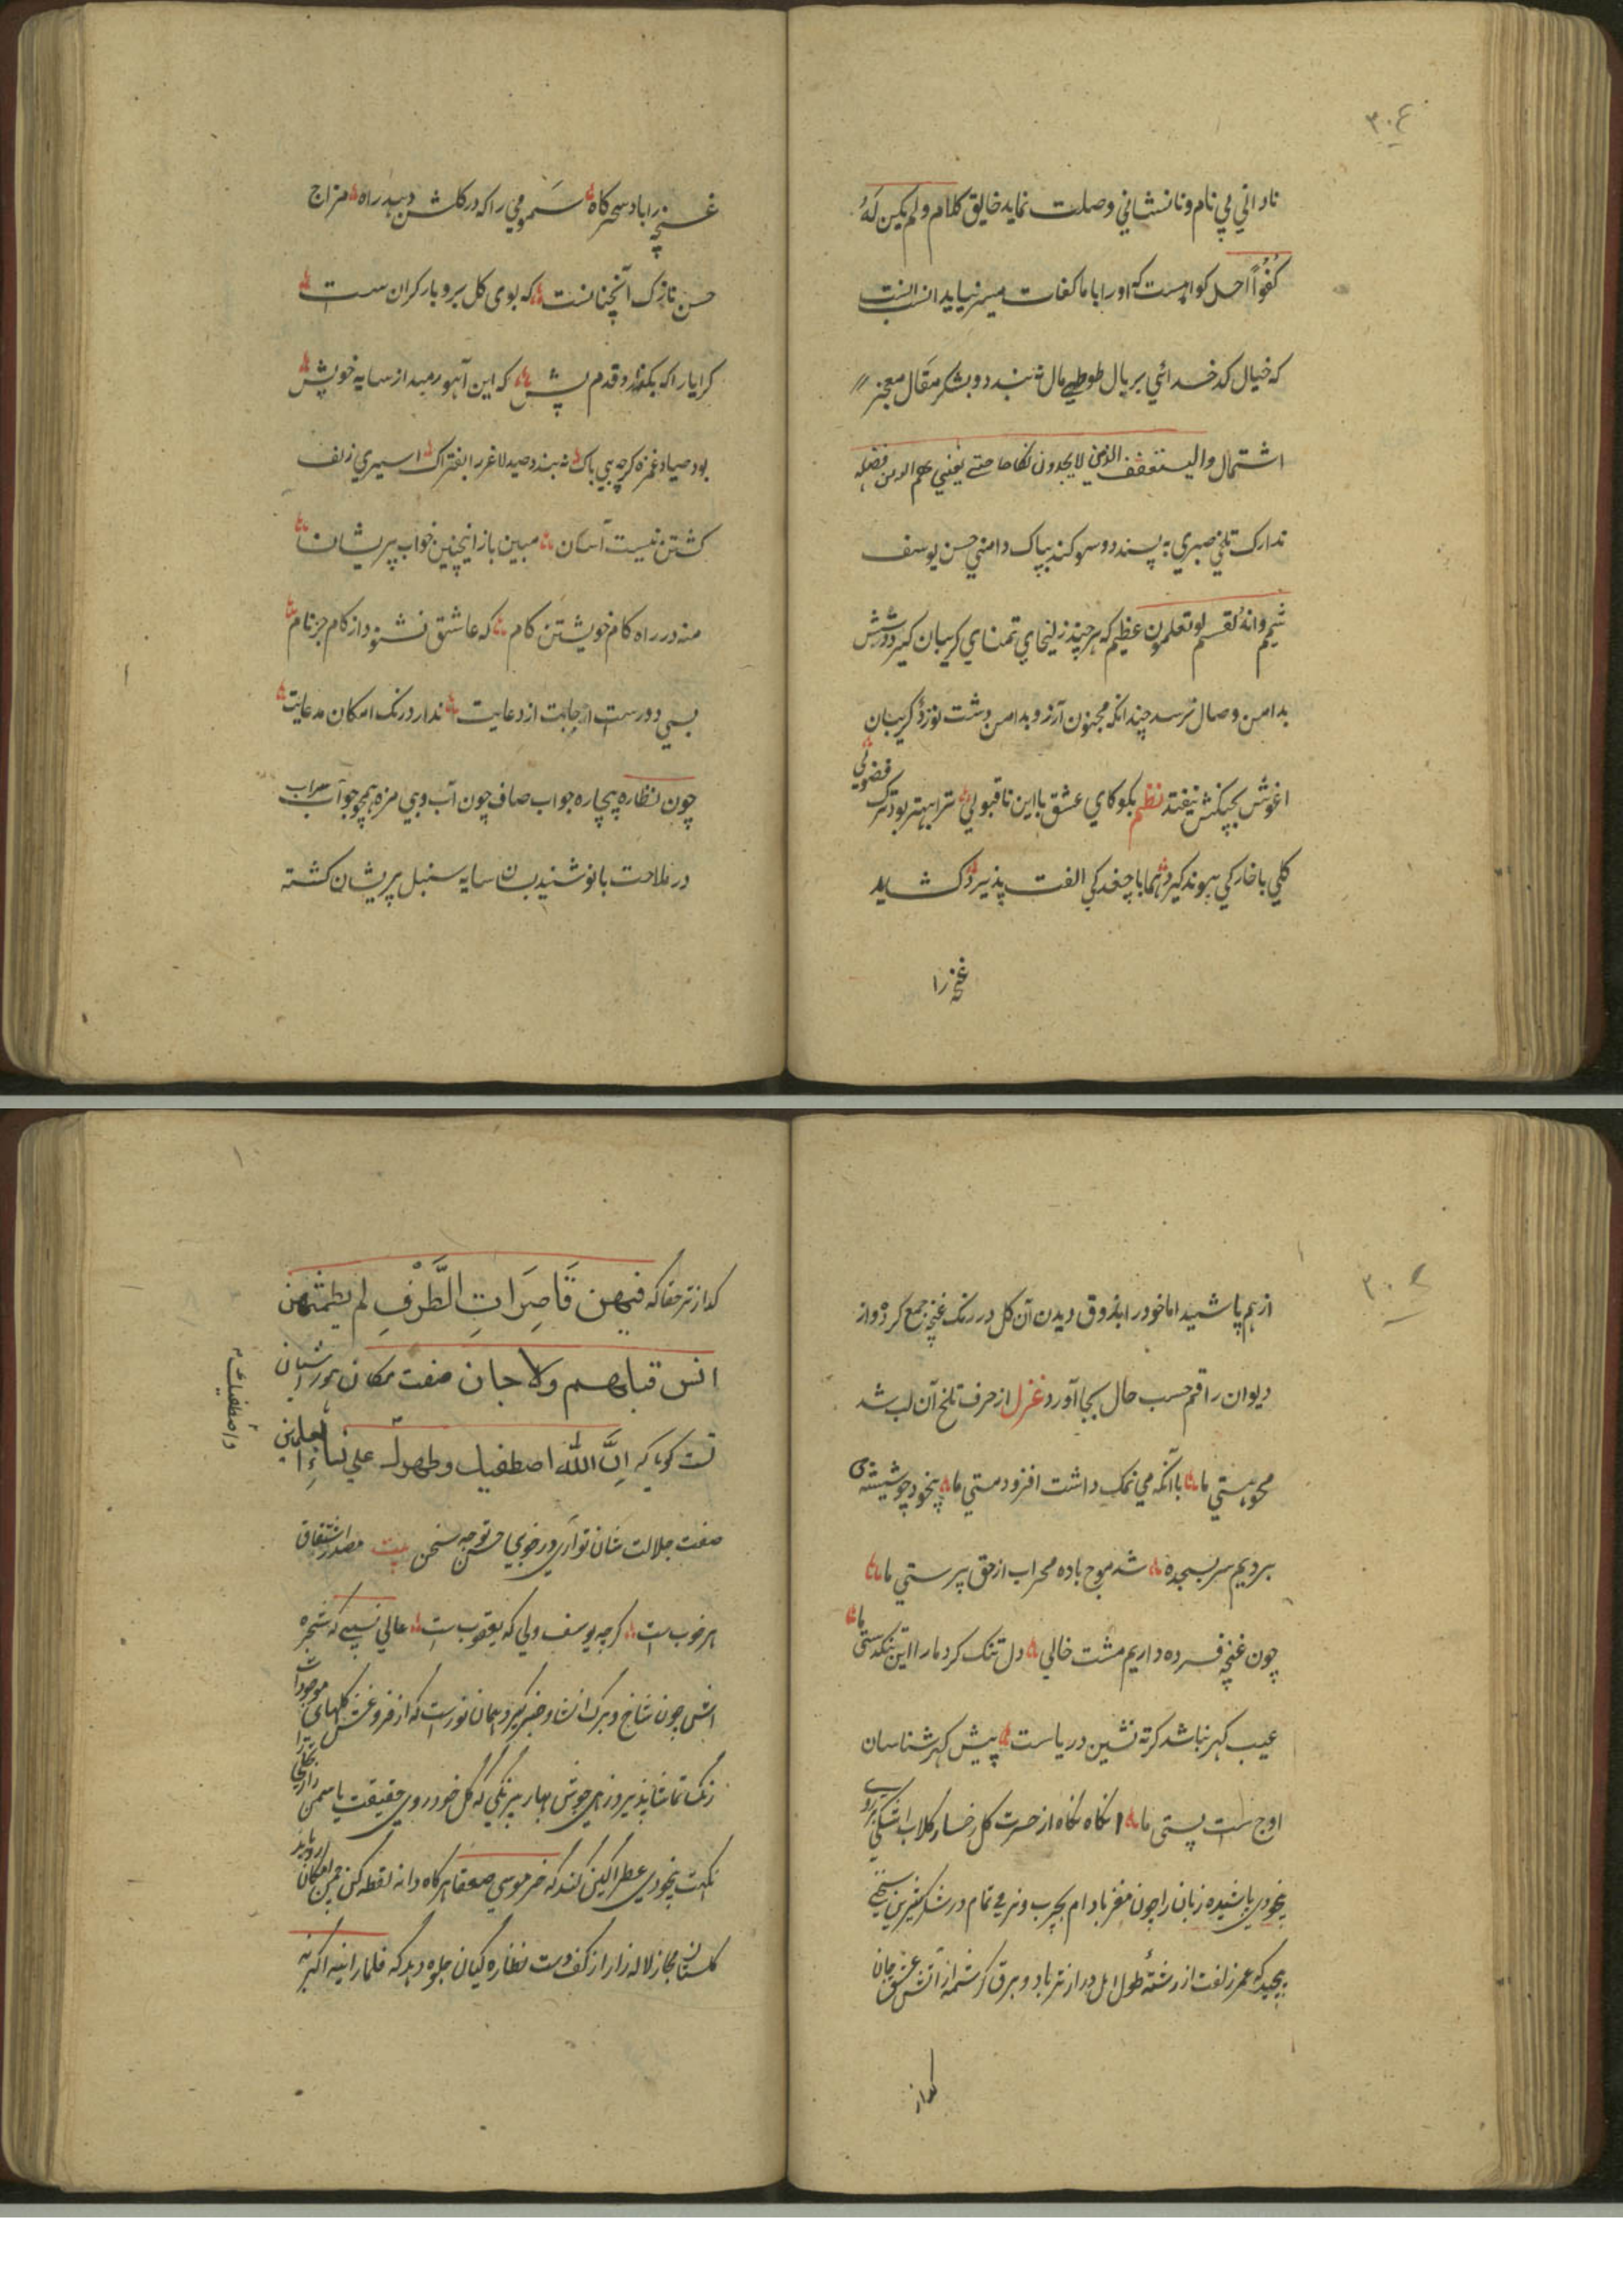 ٣٠٤
نادانی بی نام ونانشانی وصلت نماید خالیق کلام ولم یکن له
کفوا احد کواهست که او را با ما کفات میسر نیاید انسب
که خیال کدخدائی بر بال طوطی مال نه بندد و بشکر مقال معجز
اشتمال والیستعفف الذین لایجدون نکاحا حتی یغنیهم الله من فضله
تدارک تلخ صبری به پسندد و سو کند بپاک دامنی حسن یوسف
شیم وانه لقسم لو تعلمون عظیم که هر چند زلیخای تمنای کریبان کیر
بدامن وصال نرسد چندانکه مجنون آرزو بدامن دشت نوزد کریبان
اغوش بچنکش نیفتد نظم بکو کای عشق با این ناقبولی ترا بهتر بود ترک فضولی
کلی با خار کی پیوند کیرد هما با چغد کی الفت پذیرد کشاید
غنچه را
غنچه را باد سحرکاه سمومی را که در کلشن دهد راه مزاج
حسن نازک آنچنانست که بوی کل برو بار کران ست
کرا یارا که بکذارد قدم پیش که این آهو رمید از سایه خویش
بود صیاد غمزه کرچه بی باک نه بندد صید لاغر را بفتراک اسیری زلف
کشتن نیست آسان مبین باز اینچنین خواب پریشان
منه در راه کام خویشتن کام که عاشق نشنود از کام جز نام
بسی دورست اجابت از دعایت ندارد رنک امکان مدعایت
چون نظاره بیچاره جواب صاف چون آب و بی مزه همچو جو آب سراب
در ملاحت بانو شنید بسان سایه سنبل پریشان کشته
٣٠٤
از هم پاشید اما خود را بذوق دیدن آن کل در رنک غنچه جمع کرده واز
دیوان راقم حسب حال بجا آورد غزل از حرف تلخ آن لب شد
محو هستی ما با آنکه می نمک داشت افزود مستی ما بیخود چو شیشه می
بردیم سر بسجده شد موج باده محراب از حق پرستی ما
چون غنچه فسرده داریم مشت خالی دل تنک کرد ما را این تنکدستی ما
عیب کهر نباشد کر ته نشین دریاست پیش کهر شناسان
اوج است پستی ما نکاه نکاه از حسرت کل رخسار کلاب اشکی بر روی
بیخودی پاشیده زبان را چون مغز بادام بچرب و نرمی تمام در شکر شیرین سخنی
پیچید که عمر زلفت از رشته طول امل دراز تر باد و برق کرشمه از آتش عشق جان
کداز
کداز تر حقا که فیهن قاصرات الطرف لم یطمثهن
انس قبلهم ولا جان صفت مکان حور شان
تست کویا که ان الله اصطفیک وطهرک علی نساء العالمین
واصطفیک
صفت جلالت شان تو آری در خوبی حسن تو چه سخن بیت مصدر اشتقاق
هر خوب است کرچه یوسف ولی که یعقوب است عالی نسبی که شجره
اش چون شاخ و برک انشا و خبر کیرد همان نورست که از فروغش کلهای موجودات
رنک تماشا پذیرد زهی جوش بهار بیرنکی که کل خود روی حقیقت یاسمن
نکهت بیخودی عطر آکین کند که خر موسی صعقا هرکاه دانه نقطه کن چمن امکان
کلستان مجاز لاله زار از کف دست نظاره کیان جلوه دهد که فلما راینه اکبرنه